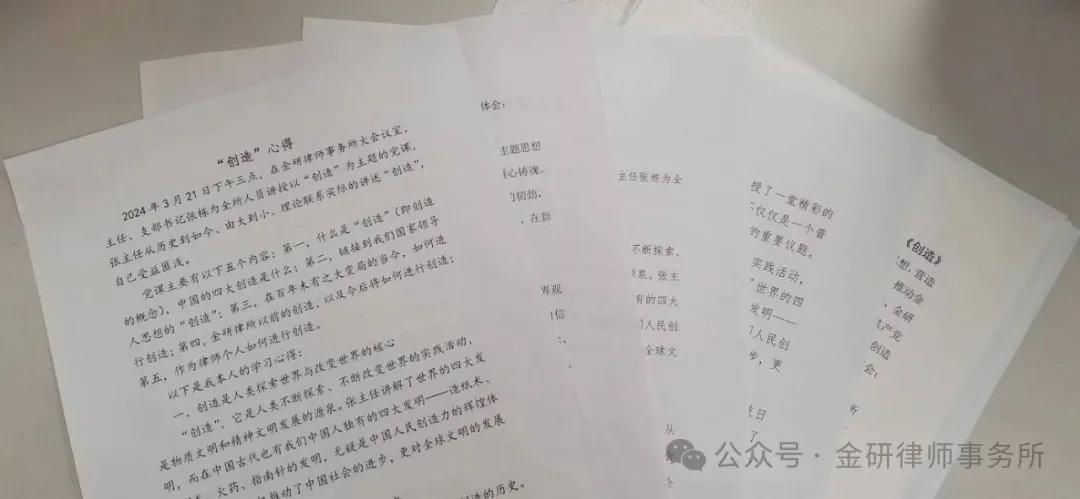 “创造”心得
2024年3月21日下午三点，在金研律师事务所大会议室，
主任、支部书记张栋为全所人员讲授以“创造”为主题的党课，
张主任从历史到如今、由大到小、理论联系实际的讲述“创造”，
自己受益匪浅。
党课主要有以下五个内容：第一，什么是“创造”（即创造
的概念），中国的四大创造是什么；第二，链接到我们国家领导
人思想的“创造”；第三，在百年未有之大变局的当今，如何进
行创造；第四，金研律所以前的创造，以及今后将如何进行创造；
第五，作为律师个人如何进行创造。
以下是我本人的学习心得：
一、创造是人类探索世界与改变世界的核心
“创造”，它是人类不断探索、不断改变世界的实践活动，
是物质文明和精神文明发展的源泉。张主任讲解了世界的四大发
明，而在中国古代也有我们中国人独有的四大发明——造纸术、
火药、指南针的发明，无疑是中国人民创造力的辉煌体
推动了中国社会的进步，更对全球文明的发展
造的历史。
体会：
主题思想
心铸魂。
韧劲，
，在新
界观
信
主任张栋为全
不断探索、
象。张主
有的四大
人民创
全球文
从
授了一堂精彩的
不仅仅是一个普
的重要议题。
实践活动，
世界的四
发明——
人民创
步，更
日
了
《创造》
想，营造
推动金
，金研
共产党
创造
会：
所
公众号·金研律师事务所